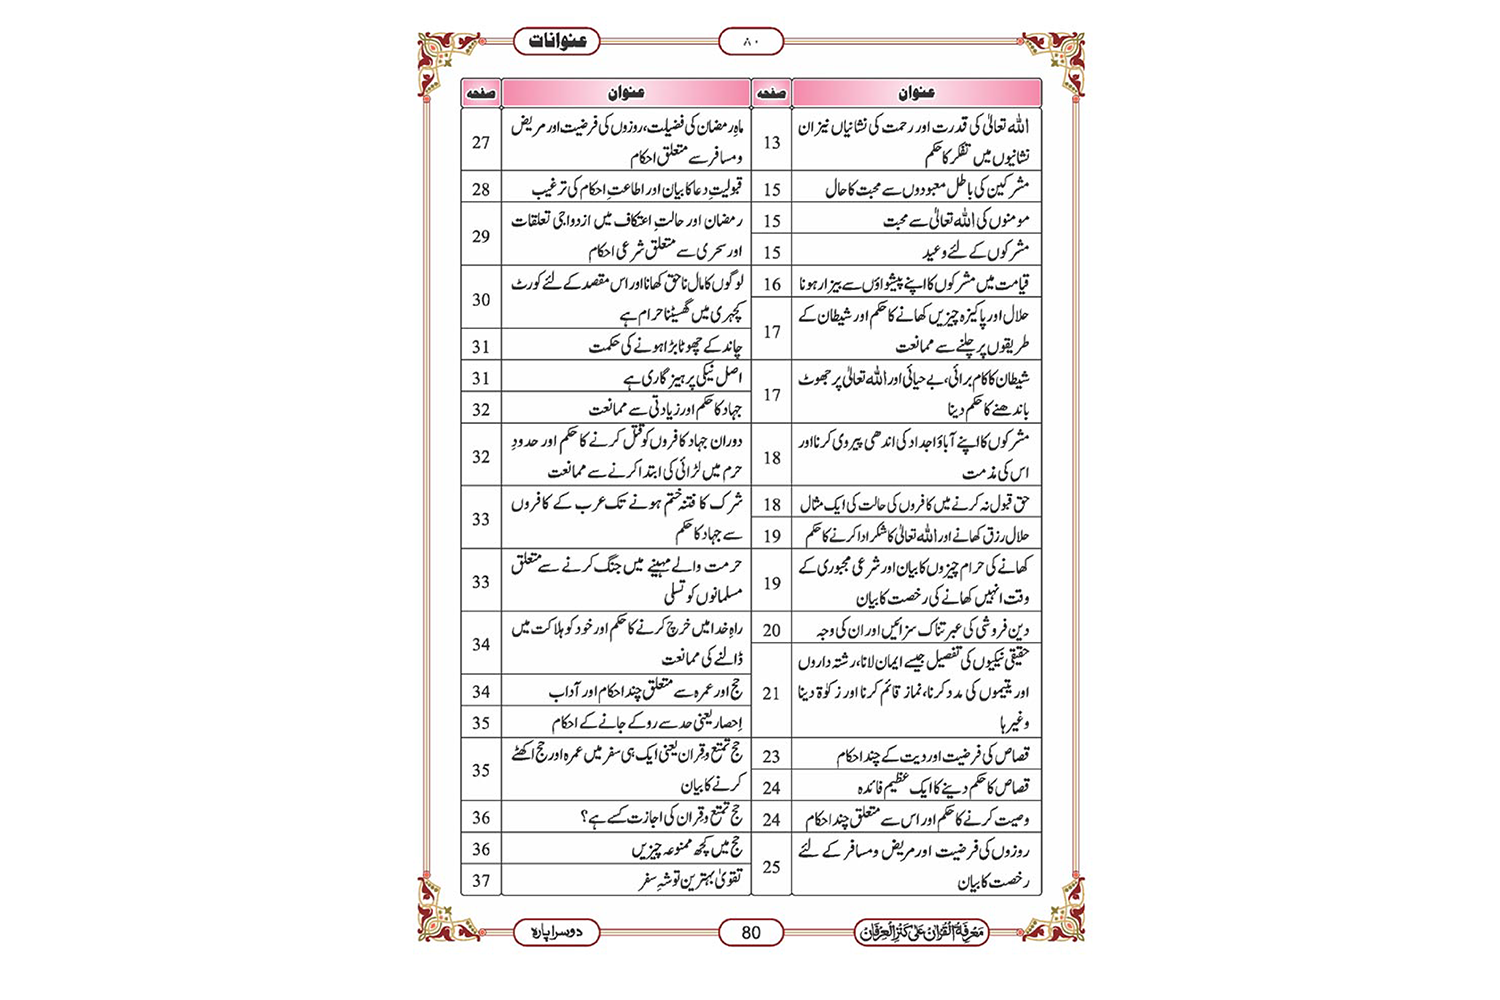 عنوانات
۸۰
عنوان
صفحہ
اللہ تعالیٰ کی قدرت اور رحمت کی نشانیاں نیز ان
نشانیوں میں تفکر کا حکم
13
مشرکین کی باطل معبودوں سے محبت کا حال
15
مومنوں کی اللہ تعالیٰ سے محبت
15
مشرکوں کے لئے وعید
15
قیامت میں مشرکوں کا اپنے پیشواؤں سے بیزار ہونا
16
حلال اور پاکیزہ چیزیں کھانے کا حکم اور شیطان کے
طریقوں پر چلنے سے ممانعت
17
شیطان کا کام برائی، بے حیائی اور اللہ تعالیٰ پر جھوٹ
باندھنے کا حکم دینا
17
مشرکوں کا اپنے آباؤ اجداد کی اندھی پیروی کرنا اور
اس کی مذمت
18
حق قبول نہ کرنے میں کافروں کی حالت کی ایک مثال
18
حلال رزق کھانے اور اللہ تعالیٰ کا شکر ادا کرنے کا حکم
19
کھانے کی حرام چیزوں کا بیان اور شرعی مجبوری کے
وقت انہیں کھانے کی رخصت کا بیان
19
دین فروشی کی عبرتناک سزائیں اور ان کی وجہ
20
حقیقی نیکیوں کی تفصیل جیسے ایمان لانا، رشتہ داروں
اور یتیموں کی مدد کرنا، نماز قائم کرنا اور زکوٰۃ دینا
وغیرہا
21
قصاص کی فرضیت اور دیت کے چند احکام
23
قصاص کا حکم دینے کا ایک عظیم فائدہ
24
وصیت کرنے کا حکم اور اس سے متعلق چند احکام
24
روزوں کی فرضیت اور مریض و مسافر کے لئے
رخصت کا بیان
25
عنوان
صفحہ
ماہِ رمضان کی فضیلت، روزوں کی فرضیت اور مریض
و مسافر سے متعلق احکام
27
قبولیتِ دعا کا بیان اور اطاعتِ احکام کی ترغیب
28
رمضان اور حالتِ اعتکاف میں ازدواجی تعلقات
اور سحری سے متعلق شرعی احکام
29
لوگوں کا مال ناحق کھانا اور اس مقصد کے لئے کورٹ
کچہری میں گھسیٹنا حرام ہے
30
چاند کے چھوٹا بڑا ہونے کی حکمت
31
اصل نیکی پرہیزگاری ہے
31
جہاد کا حکم اور زیادتی سے ممانعت
32
دوران جہاد کافروں کو قتل کرنے کا حکم اور حدودِ
حرم میں لڑائی کی ابتدا کرنے سے ممانعت
32
شرک کا فتنہ ختم ہونے تک عرب کے کافروں
سے جہاد کا حکم
33
حرمت والے مہینے میں جنگ کرنے سے متعلق
مسلمانوں کو تسلی
33
راہِ خدا میں خرچ کرنے کا حکم اور خود کو ہلاکت میں
ڈالنے کی ممانعت
34
حج اور عمرہ سے متعلق چند احکام اور آداب
34
اِحصار یعنی حد سے روکے جانے کے احکام
35
حج تمتع و قِران یعنی ایک ہی سفر میں عمرہ اور حج اکٹھے
کرنے کا بیان
35
حج تمتع و قِران کی اجازت کسے ہے؟
36
حج میں کچھ ممنوعہ چیزیں
36
تقویٰ بہترین توشۂ سفر
37
مَعْرِفَۃُ الْقُرْاٰن عَلٰی کَنْزِ الْعِرْفَان
80
دوسرا پارہ